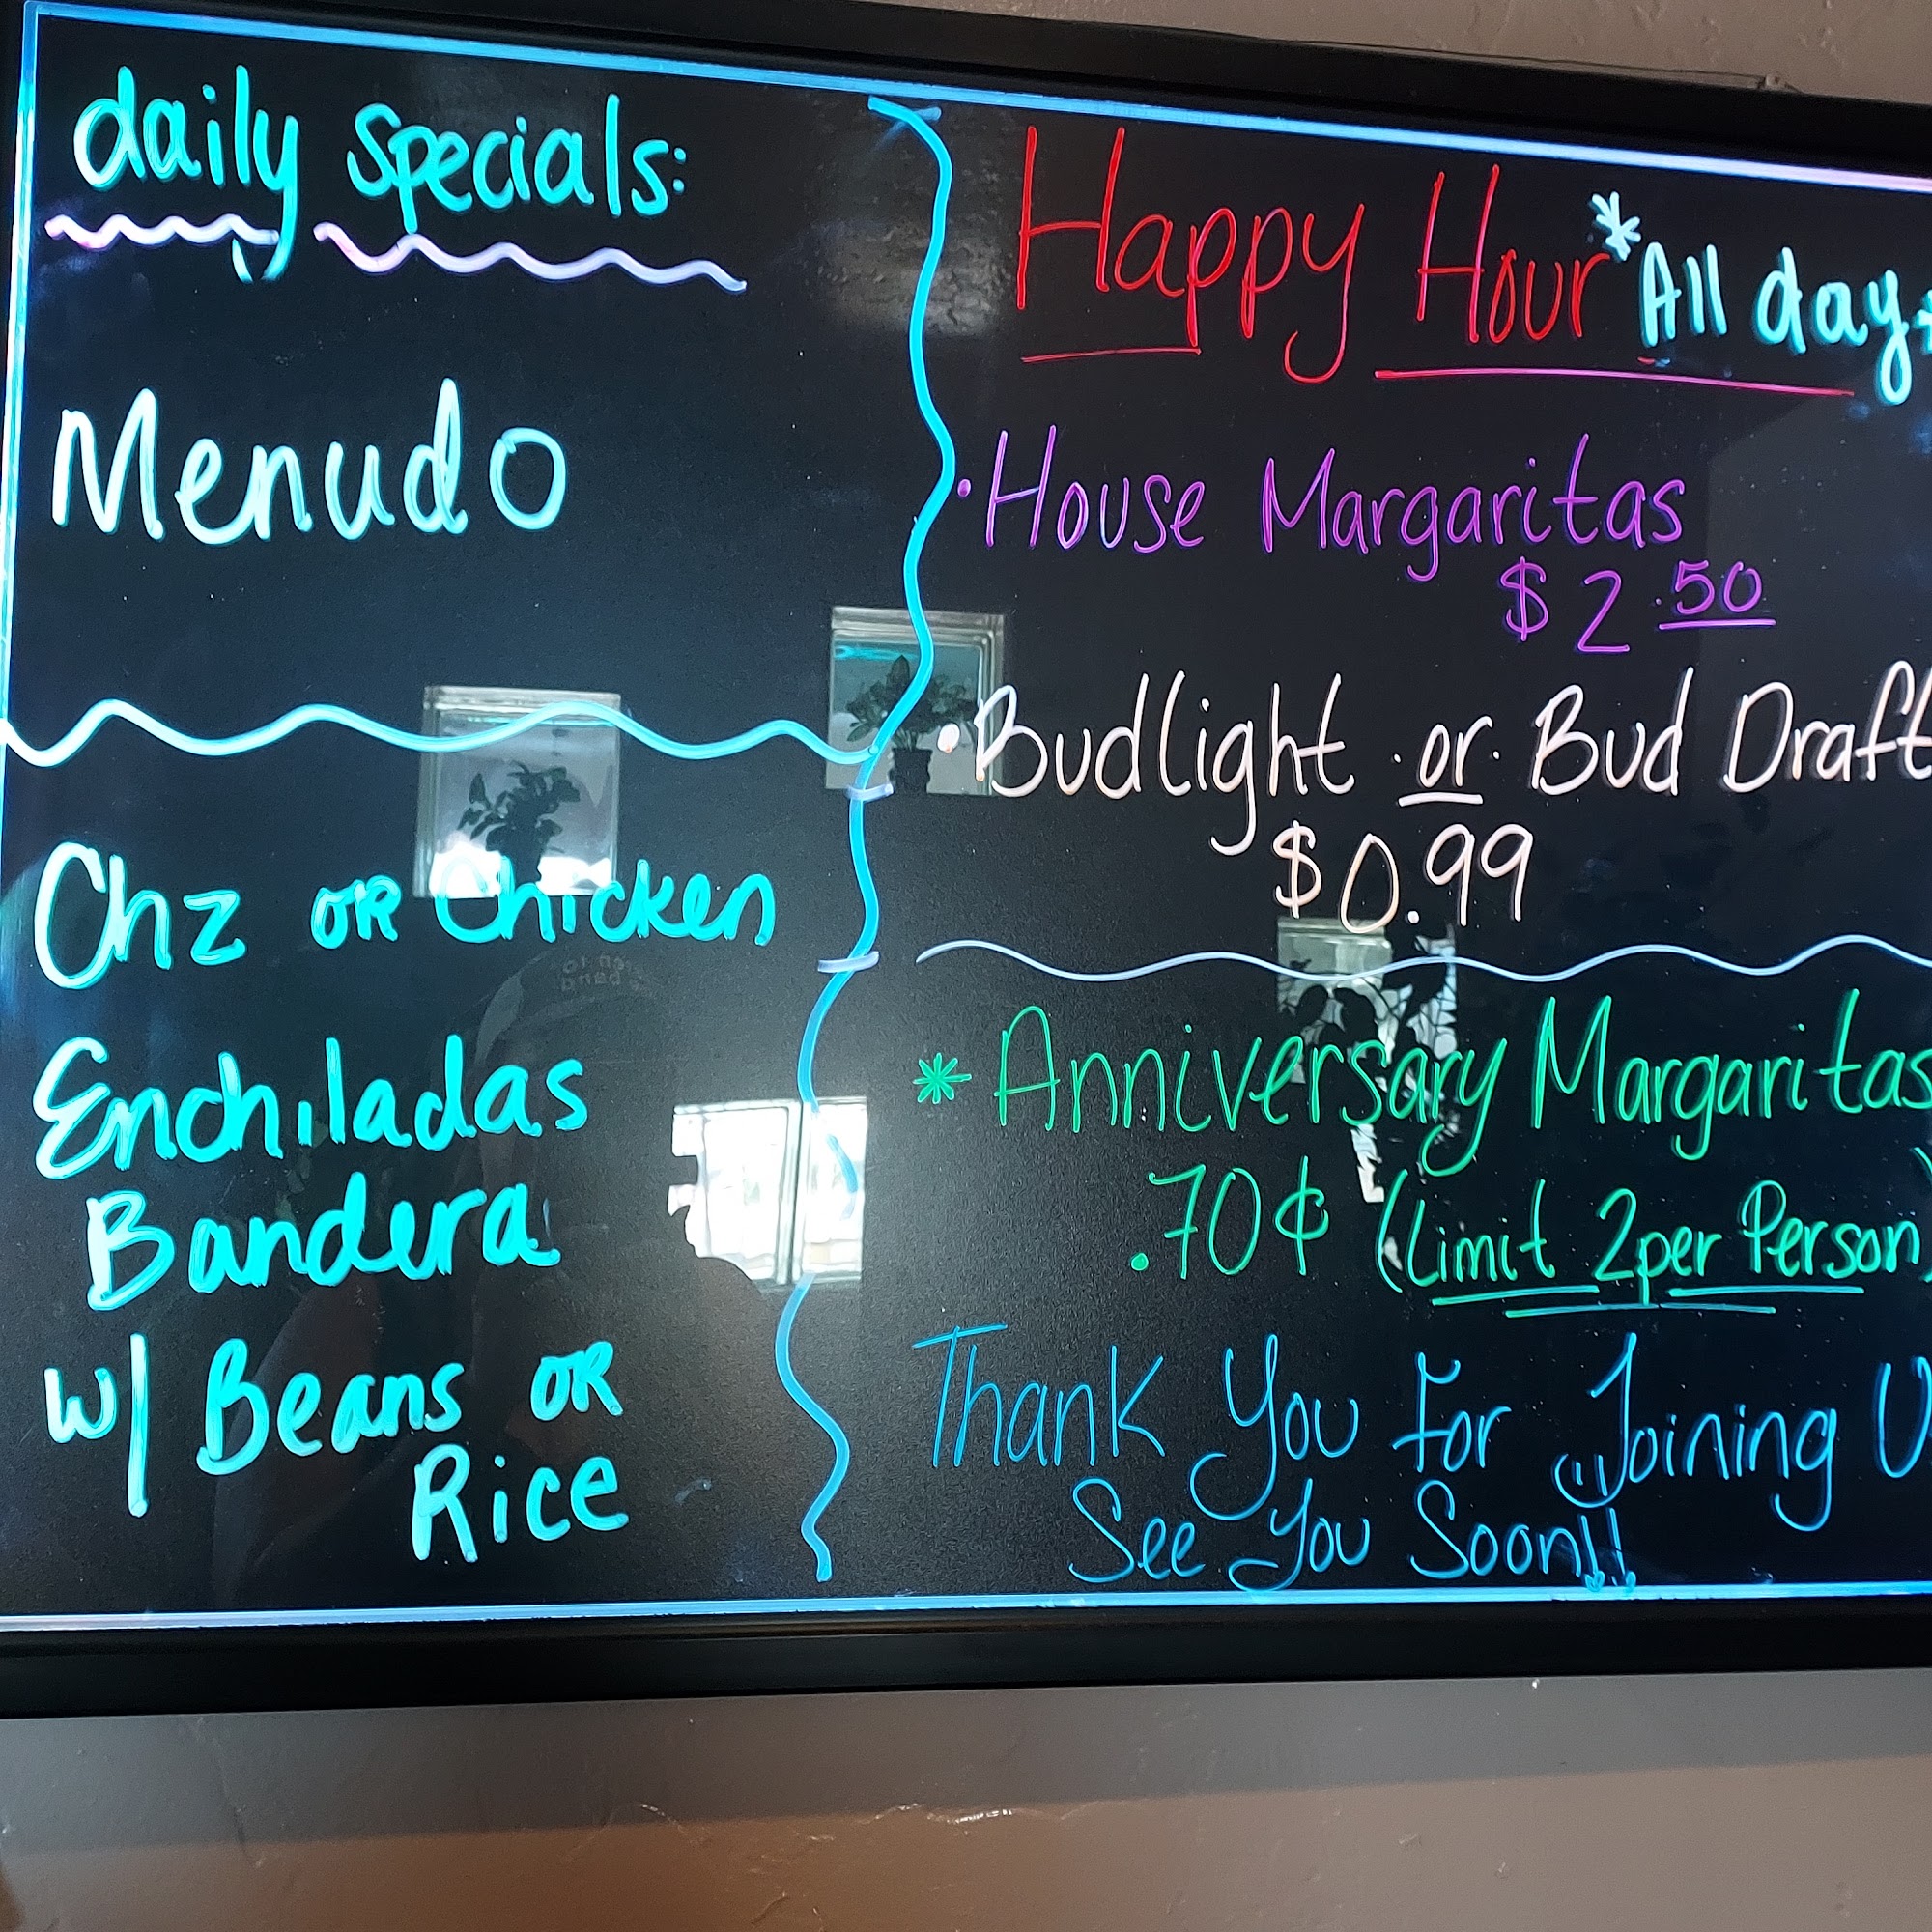 daily specials:
Menudo
Chz OR Chicken
Enchiladas
Bandera
w/ Beans OR
Rice
Happy Hour *All day*
• House Margaritas
$2.50
• Budlight • or • Bud Draft
$0.99
* Anniversary Margaritas
.70¢ (Limit 2 per Person)
Thank You For Joining U
See You Soon!!